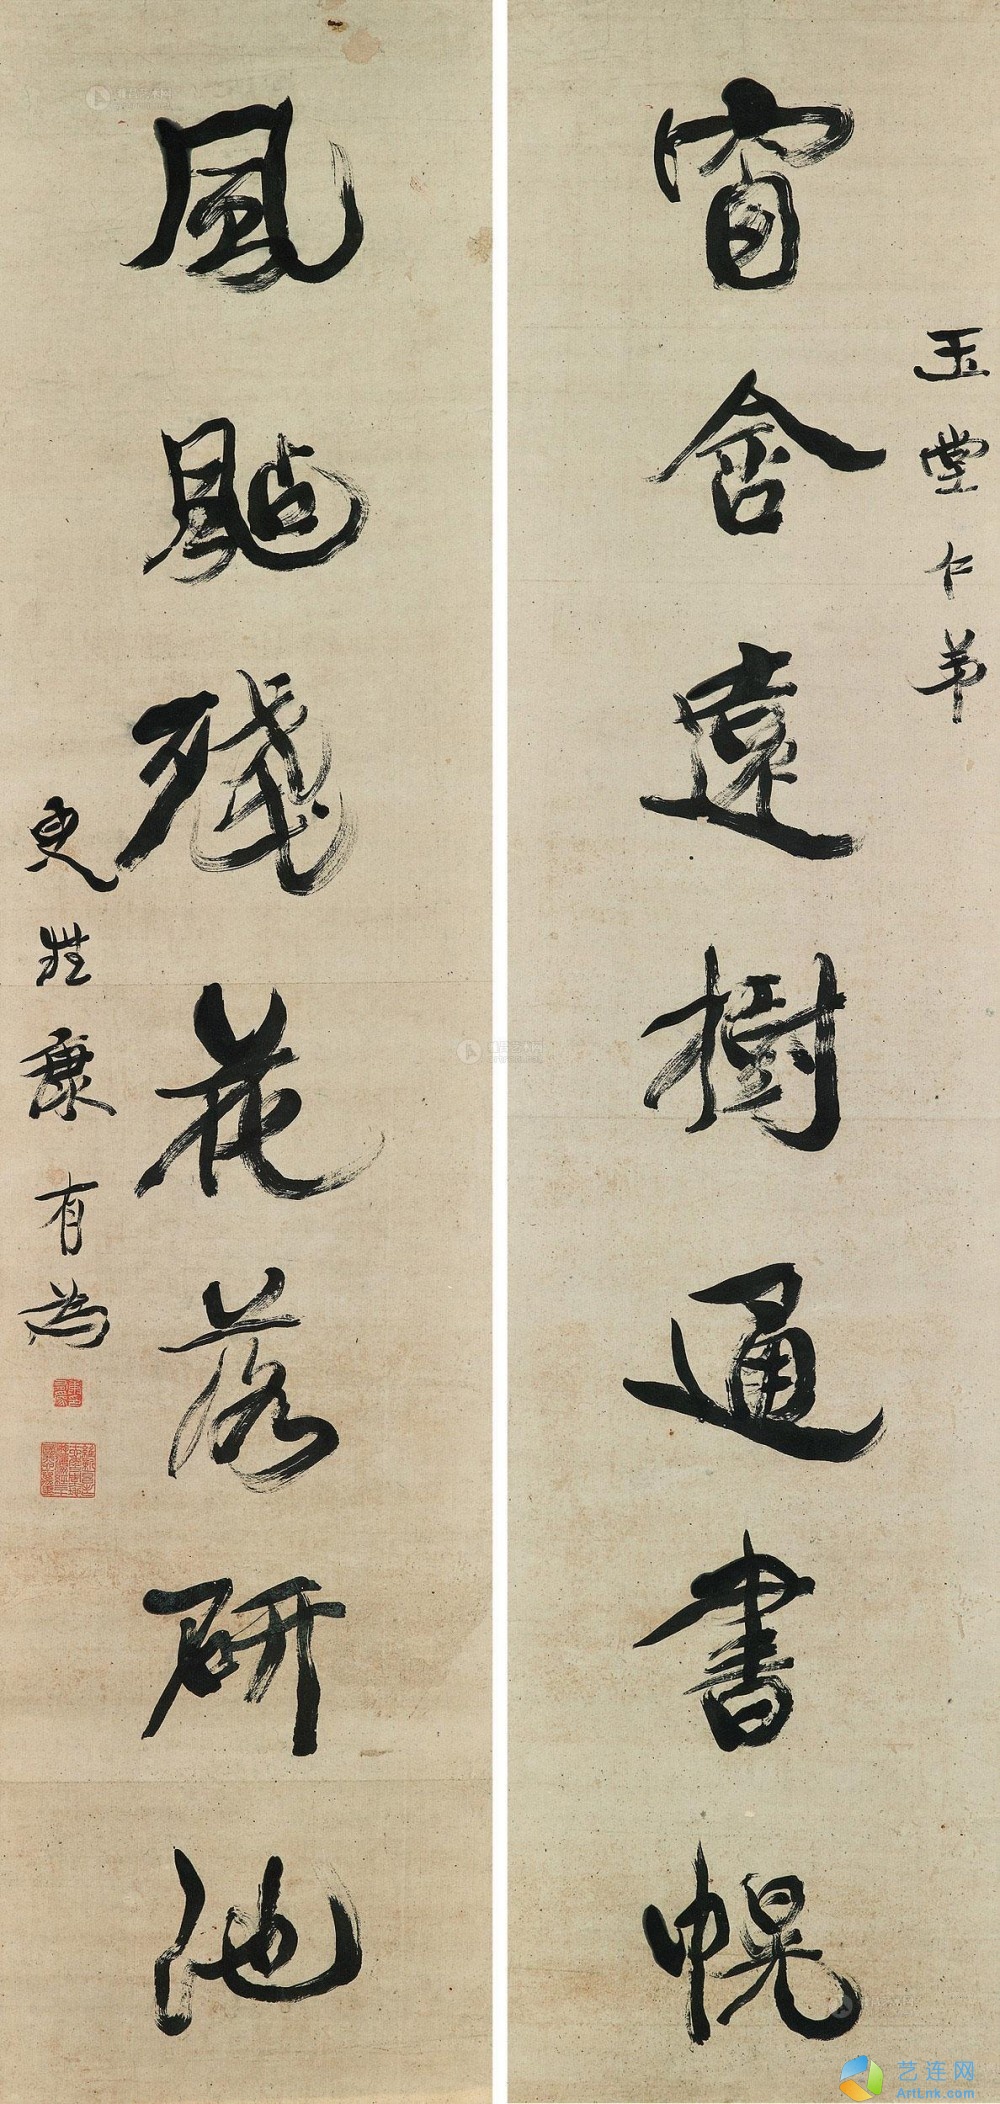 玉堂仁弟
窗含遠樹通書幌
風颭殘花落研池
更甡康有為
艺连网
ArtLnk.com